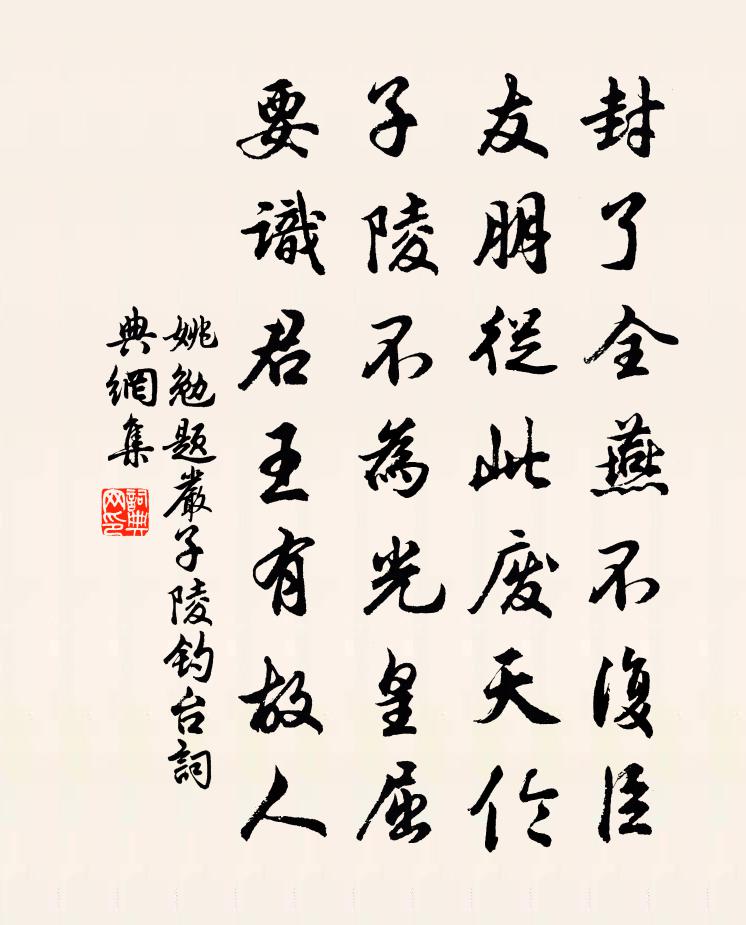 封了全燕不復臣
友朋從此廢天倫
子陵不為光皇屈
要識君王有故人
姚勉題嚴子陵釣台詞
典網集
詞典网印